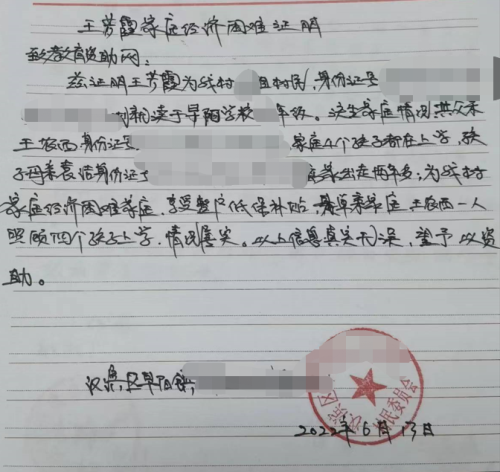 王芳霞家庭经济困难证明
致教育资助网:
兹证明王芳霞为我村 组村民,身份证号
就读于早阳学校 年级。该生家庭情况:其父亲
王 西身份证号 家庭4个孩子都在上学,孩
子母亲 身份证号 离家出走两年多;为我村
家庭经济困难家庭,享受整户低保补贴,属单亲家庭,王 西一人
照顾四个孩子上学,情况属实。以上信息真实无误,望予以资
助。
汉滨区早阳镇
汉滨区 村民委员会
2022年6月13日